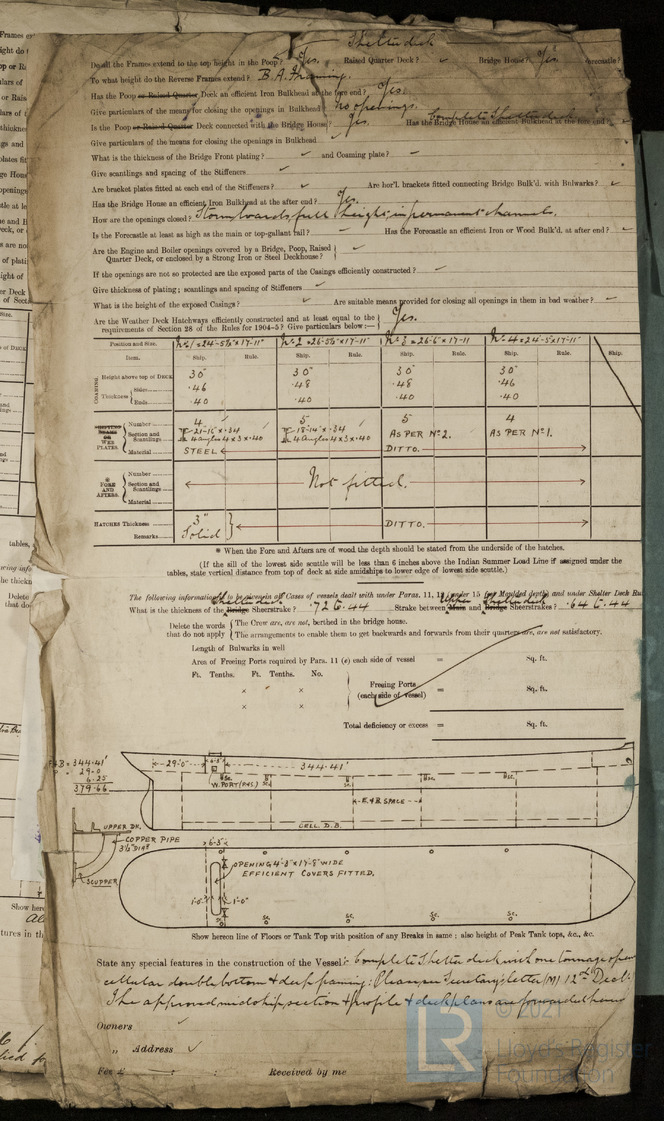 Shelter deck
Do all the Frames extend to the top height in the Poop? Yes. Raised Quarter Deck? ✓ Bridge House? Yes. Forecastle?
To what height do the Reverse Frames extend? B.A. Framing.
Has the Poop or Raised Quarter Deck an efficient Iron Bulkhead at the fore end? Yes.
Give particulars of the means for closing the openings in Bulkhead No openings.
Is the Poop or Raised Quarter Deck connected with the Bridge House? Yes. Complete Shelter deck Has the Bridge House an efficient Bulkhead at the fore end?
Give particulars of the means for closing the openings in Bulkhead ✓
What is the thickness of the Bridge Front plating? ✓ and Coaming plate? ✓
Give scantlings and spacing of the Stiffeners ✓
Are bracket plates fitted at each end of the Stiffeners? ✓ Are hor'l. brackets fitted connecting Bridge Bulk'd. with Bulwarks? ✓
Has the Bridge House an efficient Iron Bulkhead at the after end? Yes.
How are the openings closed? Stormboards full height in permanent channels.
Is the Forecastle at least as high as the main or top-gallant rail? ✓ Has the Forecastle an efficient Iron or Wood Bulk'd. at after end? ✓
Are the Engine and Boiler openings covered by a Bridge, Poop, Raised
Quarter Deck, or enclosed by a Strong Iron or Steel Deckhouse? ✓
If the openings are not so protected are the exposed parts of the Casings efficiently constructed? ✓
Give thickness of plating; scantlings and spacing of Stiffeners ✓
What is the height of the exposed Casings? ✓ Are suitable means provided for closing all openings in them in bad weather? ✓
Are the Weather Deck Hatchways efficiently constructed and at least equal to the
requirements of Section 28 of the Rules for 1904-5? Give particulars below:— Yes.
Position and Size. No 1 = 24-5½ × 17-11" No 2 = 26-5½ × 17-11" No 3 = 26-6 × 17-11 No 4 = 24-5 × 17-11"
Item. Ship. Rule. Ship. Rule. Ship. Rule. Ship. Rule. Ship.
COAMING Height above top of DECK 30" 30" 30" 30"
Thickness Sides .46 .48 .48 .46
Ends .40 .40 .40 .40
Number 4 5 5 4
WEB PLATES. Section and Scantlings 4 angles 4 × 3 × .40 4 angles 4 × 3 × .40 AS PER No 2. AS PER No 1.
Material STEEL DITTO.
* FORE AND AFTERS. Number
Section and Scantlings Not fitted.
Material
HATCHES Thickness 3" DITTO.
Remarks Solid
* When the Fore and Afters are of wood the depth should be stated from the underside of the hatches.
(If the sill of the lowest side scuttle will be less than 6 inches above the Indian Summer Load Line if assigned under the
tables, state vertical distance from top of deck at side amidships to lower edge of lowest side scuttle.)
The following information to be given in all Cases of vessels dealt with under Paras. 11, 12, under 15 (for Moulded depth) and under Shelter Deck Ru
What is the thickness of the Bridge Shelter deck Sheerstrake? .72 & .44 Strake between Main Upper and Bridge Shelter deck Sheerstrakes? .64 & .44
Delete the words that do not apply The Crew are, are not, berthed in the bridge house.
The arrangements to enable them to get backwards and forwards from their quarters are, are not satisfactory.
Length of Bulwarks in well
Area of Freeing Ports required by Par. 11 (e) each side of vessel = Sq. ft.
Ft. Tenths. Ft. Tenths. No.
× × Freeing Ports (each side of vessel) = Sq. ft.
× ×
Total deficiency or excess = Sq. ft.
344.41'
29.0
6.25
379.66
29'.0" 6'-3" 344.41'
W.PORT (P&S) Sc. Sc. Sc. Sc. Sc.
E.&B. SPACE
CELL. D.B.
UPPER DK.
COPPER PIPE
3½" DIAR
SCUPPER
6'-3"
OPENING 4'-3" × 17'-9" WIDE
EFFICIENT COVERS FITTED.
1'-0" 1'-0"
Sc. Sc. Sc. Sc.
Show hereon line of Floors or Tank Top with position of any Breaks in same; also height of Peak Tank tops, &c., &c.
State any special features in the construction of the Vessel:- Complete Shelter deck with one tonnage
cellular double bottom & deep framing. Please see Secretary's letter (M) 12th Dec.
The approved midship section & profile & deck plans are forwarded
Owners ✓
„ Address ✓
Fee £ : : Received by me
© 2021
Lloyd's Register
Foundation